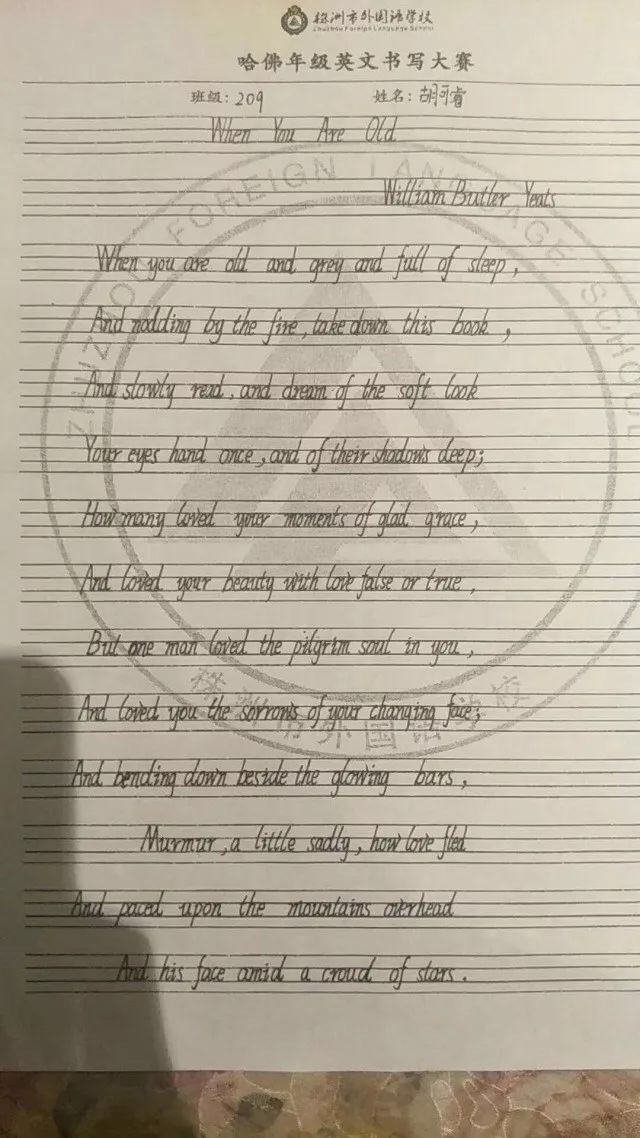 株洲市外国语学校
Zhuzhou Foreign Language School
哈佛年级英文书写大赛
班级：209 姓名：胡可睿
When You Are Old
William Butler Yeats
When you are old and grey and full of sleep,
And nodding by the fire, take down this book,
And slowly read, and dream of the soft look
Your eyes hand once, and of their shadows deep;
How many loved your moments of glad grace,
And loved your beauty with love false or true,
But one man loved the pilgrim soul in you,
And loved you the sorrows of your changing face;
And bending down beside the glowing bars,
Murmur, a little sadly, how love fled
And paced upon the mountains overhead
And his face amid a croud of stars.
ZHUZHOU FOREIGN LANGUAGE SCHOOL
株洲市外国语学校